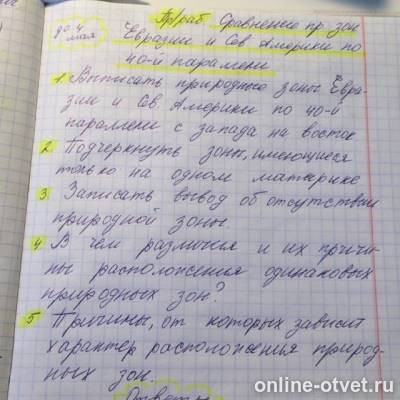 до 4 мая
Пр/раб. Сравнение пр. зон
Евразии и Сев. Америки по
40-й параллели
1. Выписать природного зоны Евра-
зии и Сев. Америки по 40-й
параллели с запада на восток
2. Подчеркнуть зоны, имеющиеся
только на одном материке
3. Записать вывод об отсутствии
природной зоны.
4. В чем различия и их причи-
ны расположения одинаковых
природных зон?
5. Причины, от которых зависит
характер расположения природ-
ных зон.
Ответы
online-otvet.ru